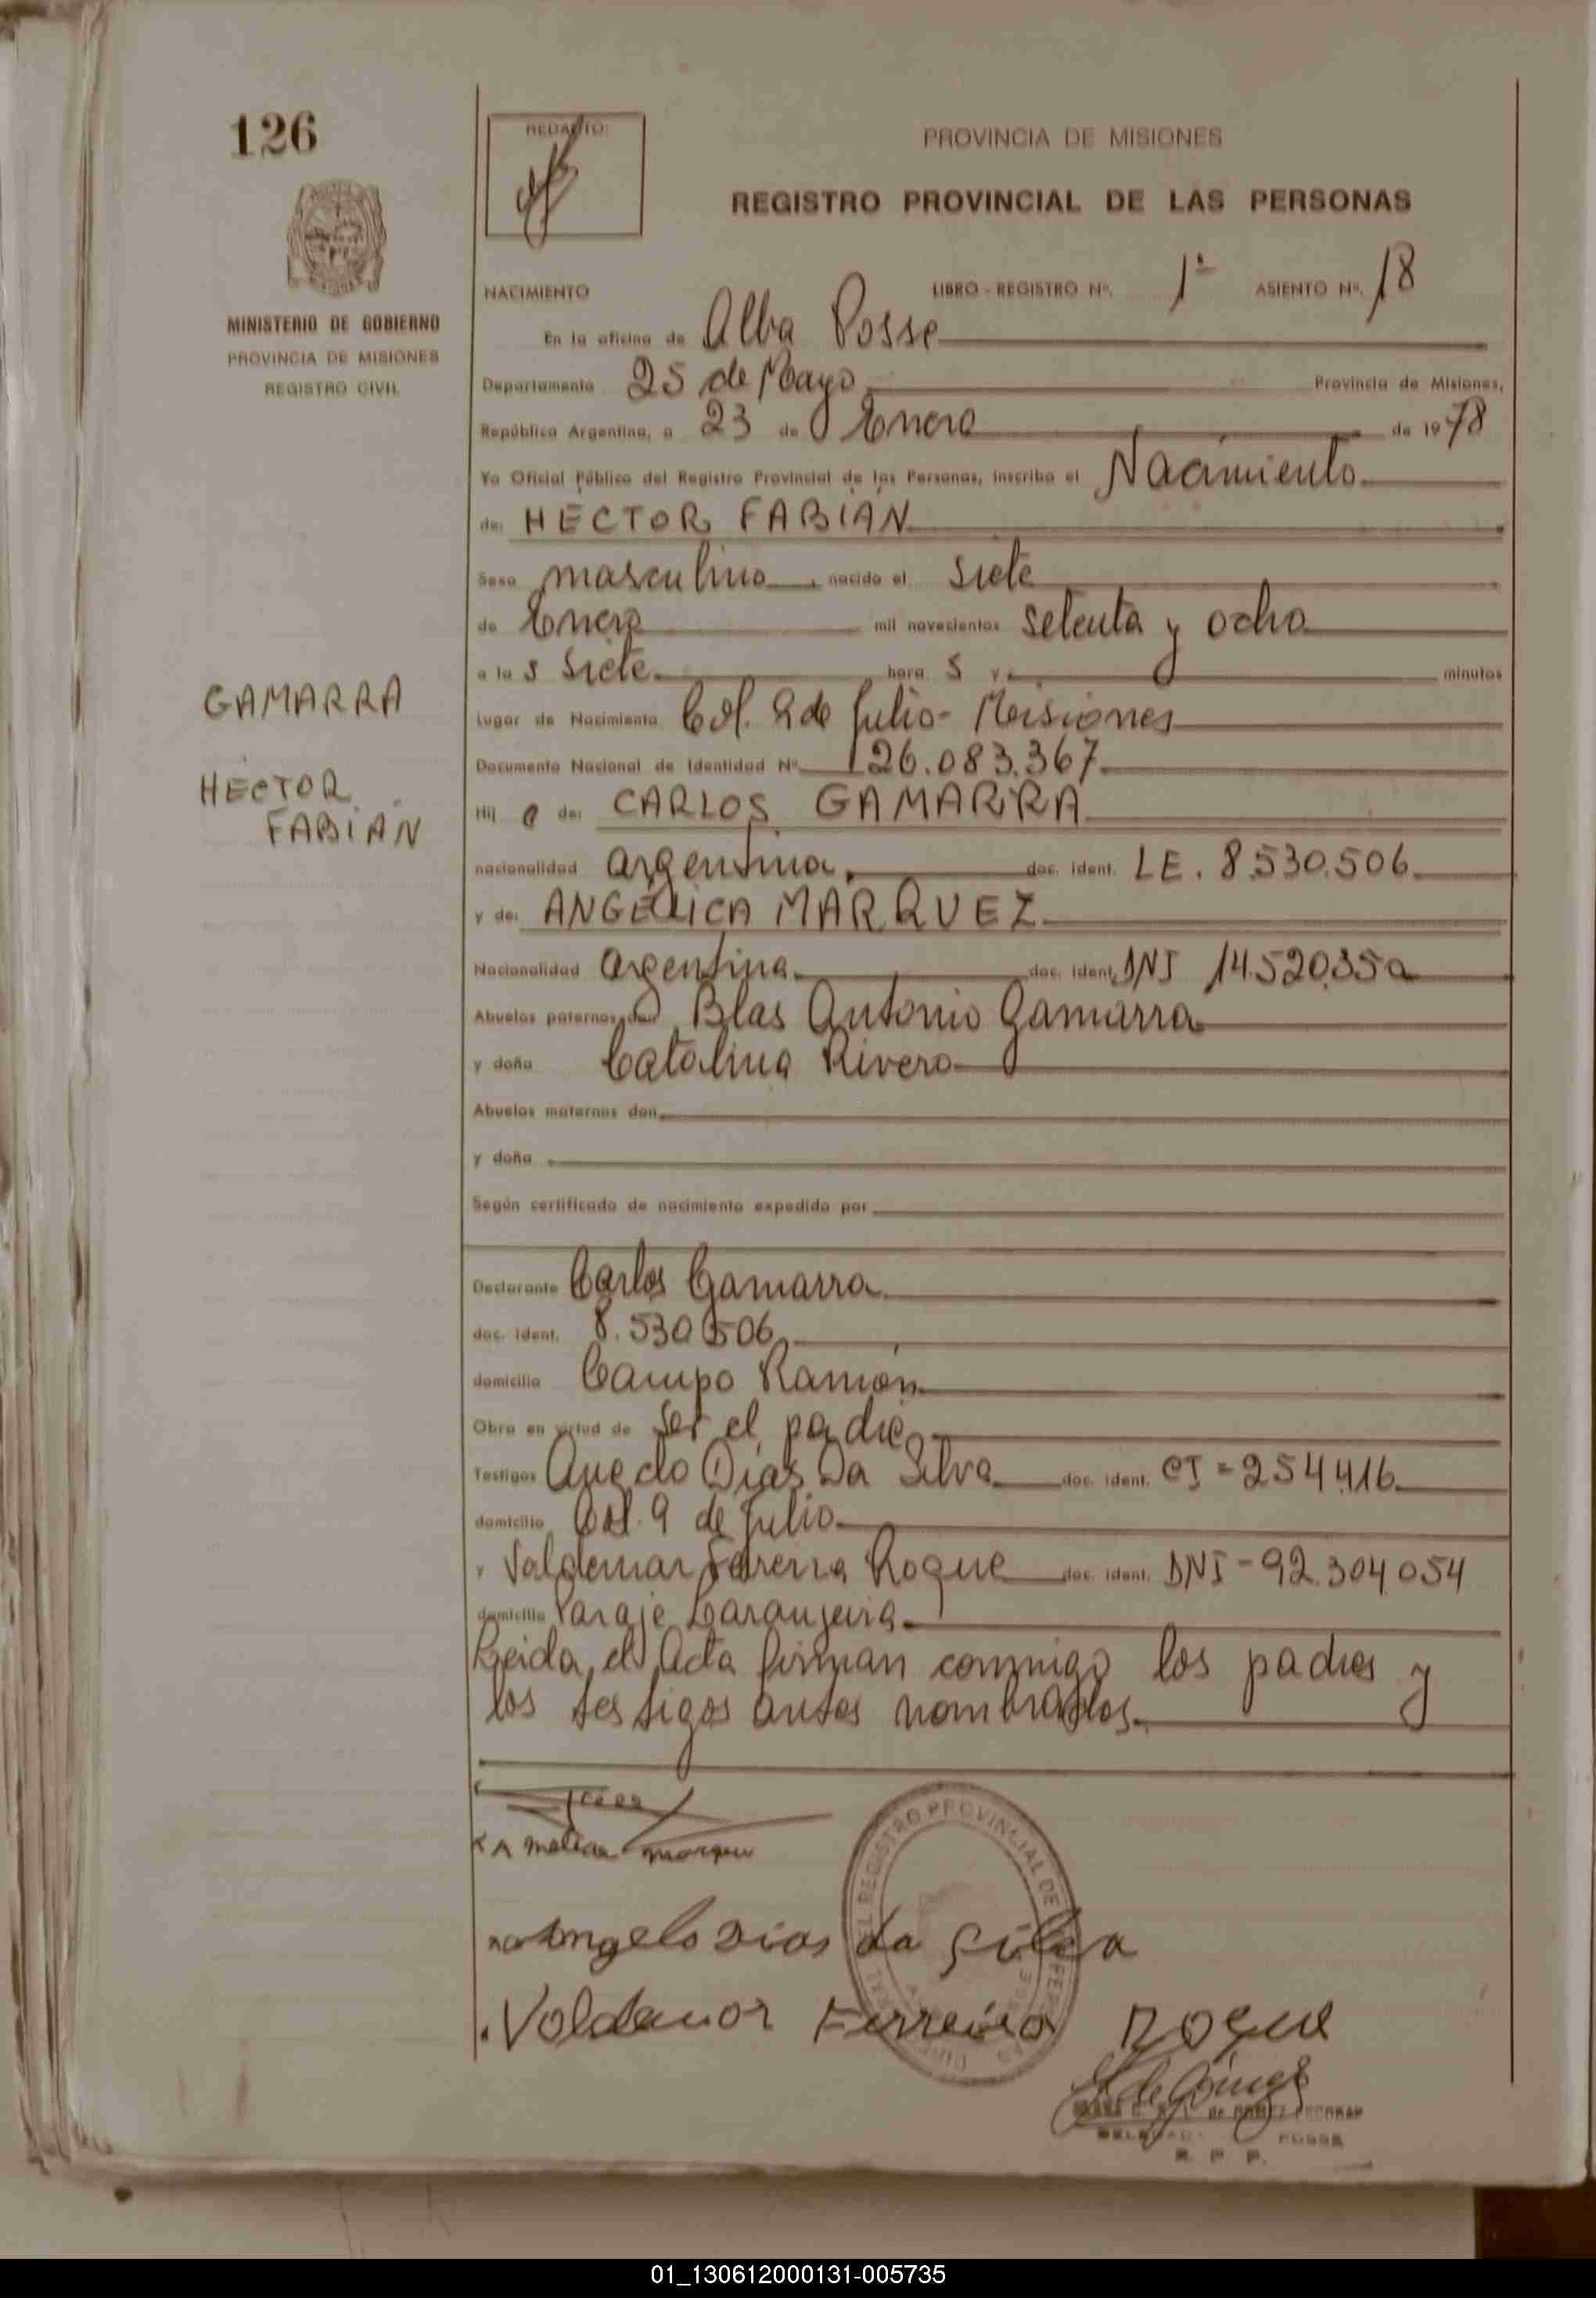 126
MINISTERIO DE GOBIERNO
PROVINCIA DE MISIONES
REGISTRO CIVIL
GAMARRA
HECTOR
FABIAN
REDACTO:
PROVINCIA DE MISIONES
REGISTRO PROVINCIAL DE LAS PERSONAS
NACIMIENTO LIBRO - REGISTRO Nº. 1º ASIENTO Nº. 18
En la oficina de Alba Posse
Departamento 25 de Mayo Provincia de Misiones,
República Argentina, a 23 de Enero de 1978
Yo Oficial Público del Registro Provincial de las Personas, inscribo el Nacimiento
de: HECTOR FABIAN
Sexo masculino, nacido el siete
de Enero mil novecientos setenta y ocho
a las siete horas y minutos
Lugar de Nacimiento Col. 9 de Julio - Misiones
Documento Nacional de Identidad Nº 26.083.367
Hijo de: CARLOS GAMARRA
nacionalidad argentina, doc. ident. LE. 8.530.506
y de: ANGELICA MARQUEZ
Nacionalidad argentina doc. ident. DNI 14.520.350
Abuelos paternos don Blas Antonio Gamarra
y doña Catalina Rivero
Abuelos maternos don
y doña
Según certificado de nacimiento expedido por
Declarante Carlos Gamarra
doc. ident. 8.530.506
domicilio Campo Ramón
Obra en virtud de ser el padre
Testigos Dias Da Silva doc. ident. CI = 254.416
domicilio Col. 9 de Julio
y Valdemar Ferreira Roque doc. ident. DNI - 92.304.054
domicilio Paraje Laranjeira
Leida el Acta firman conmigo los padres y
los testigos antes nombrados.
Angelo Dias da Silva
Voldemor Ferreira Roque
REGISTRO PROVINCIAL DE
de Gómez
POSSE
R. P. P.
01_130612000131-005735